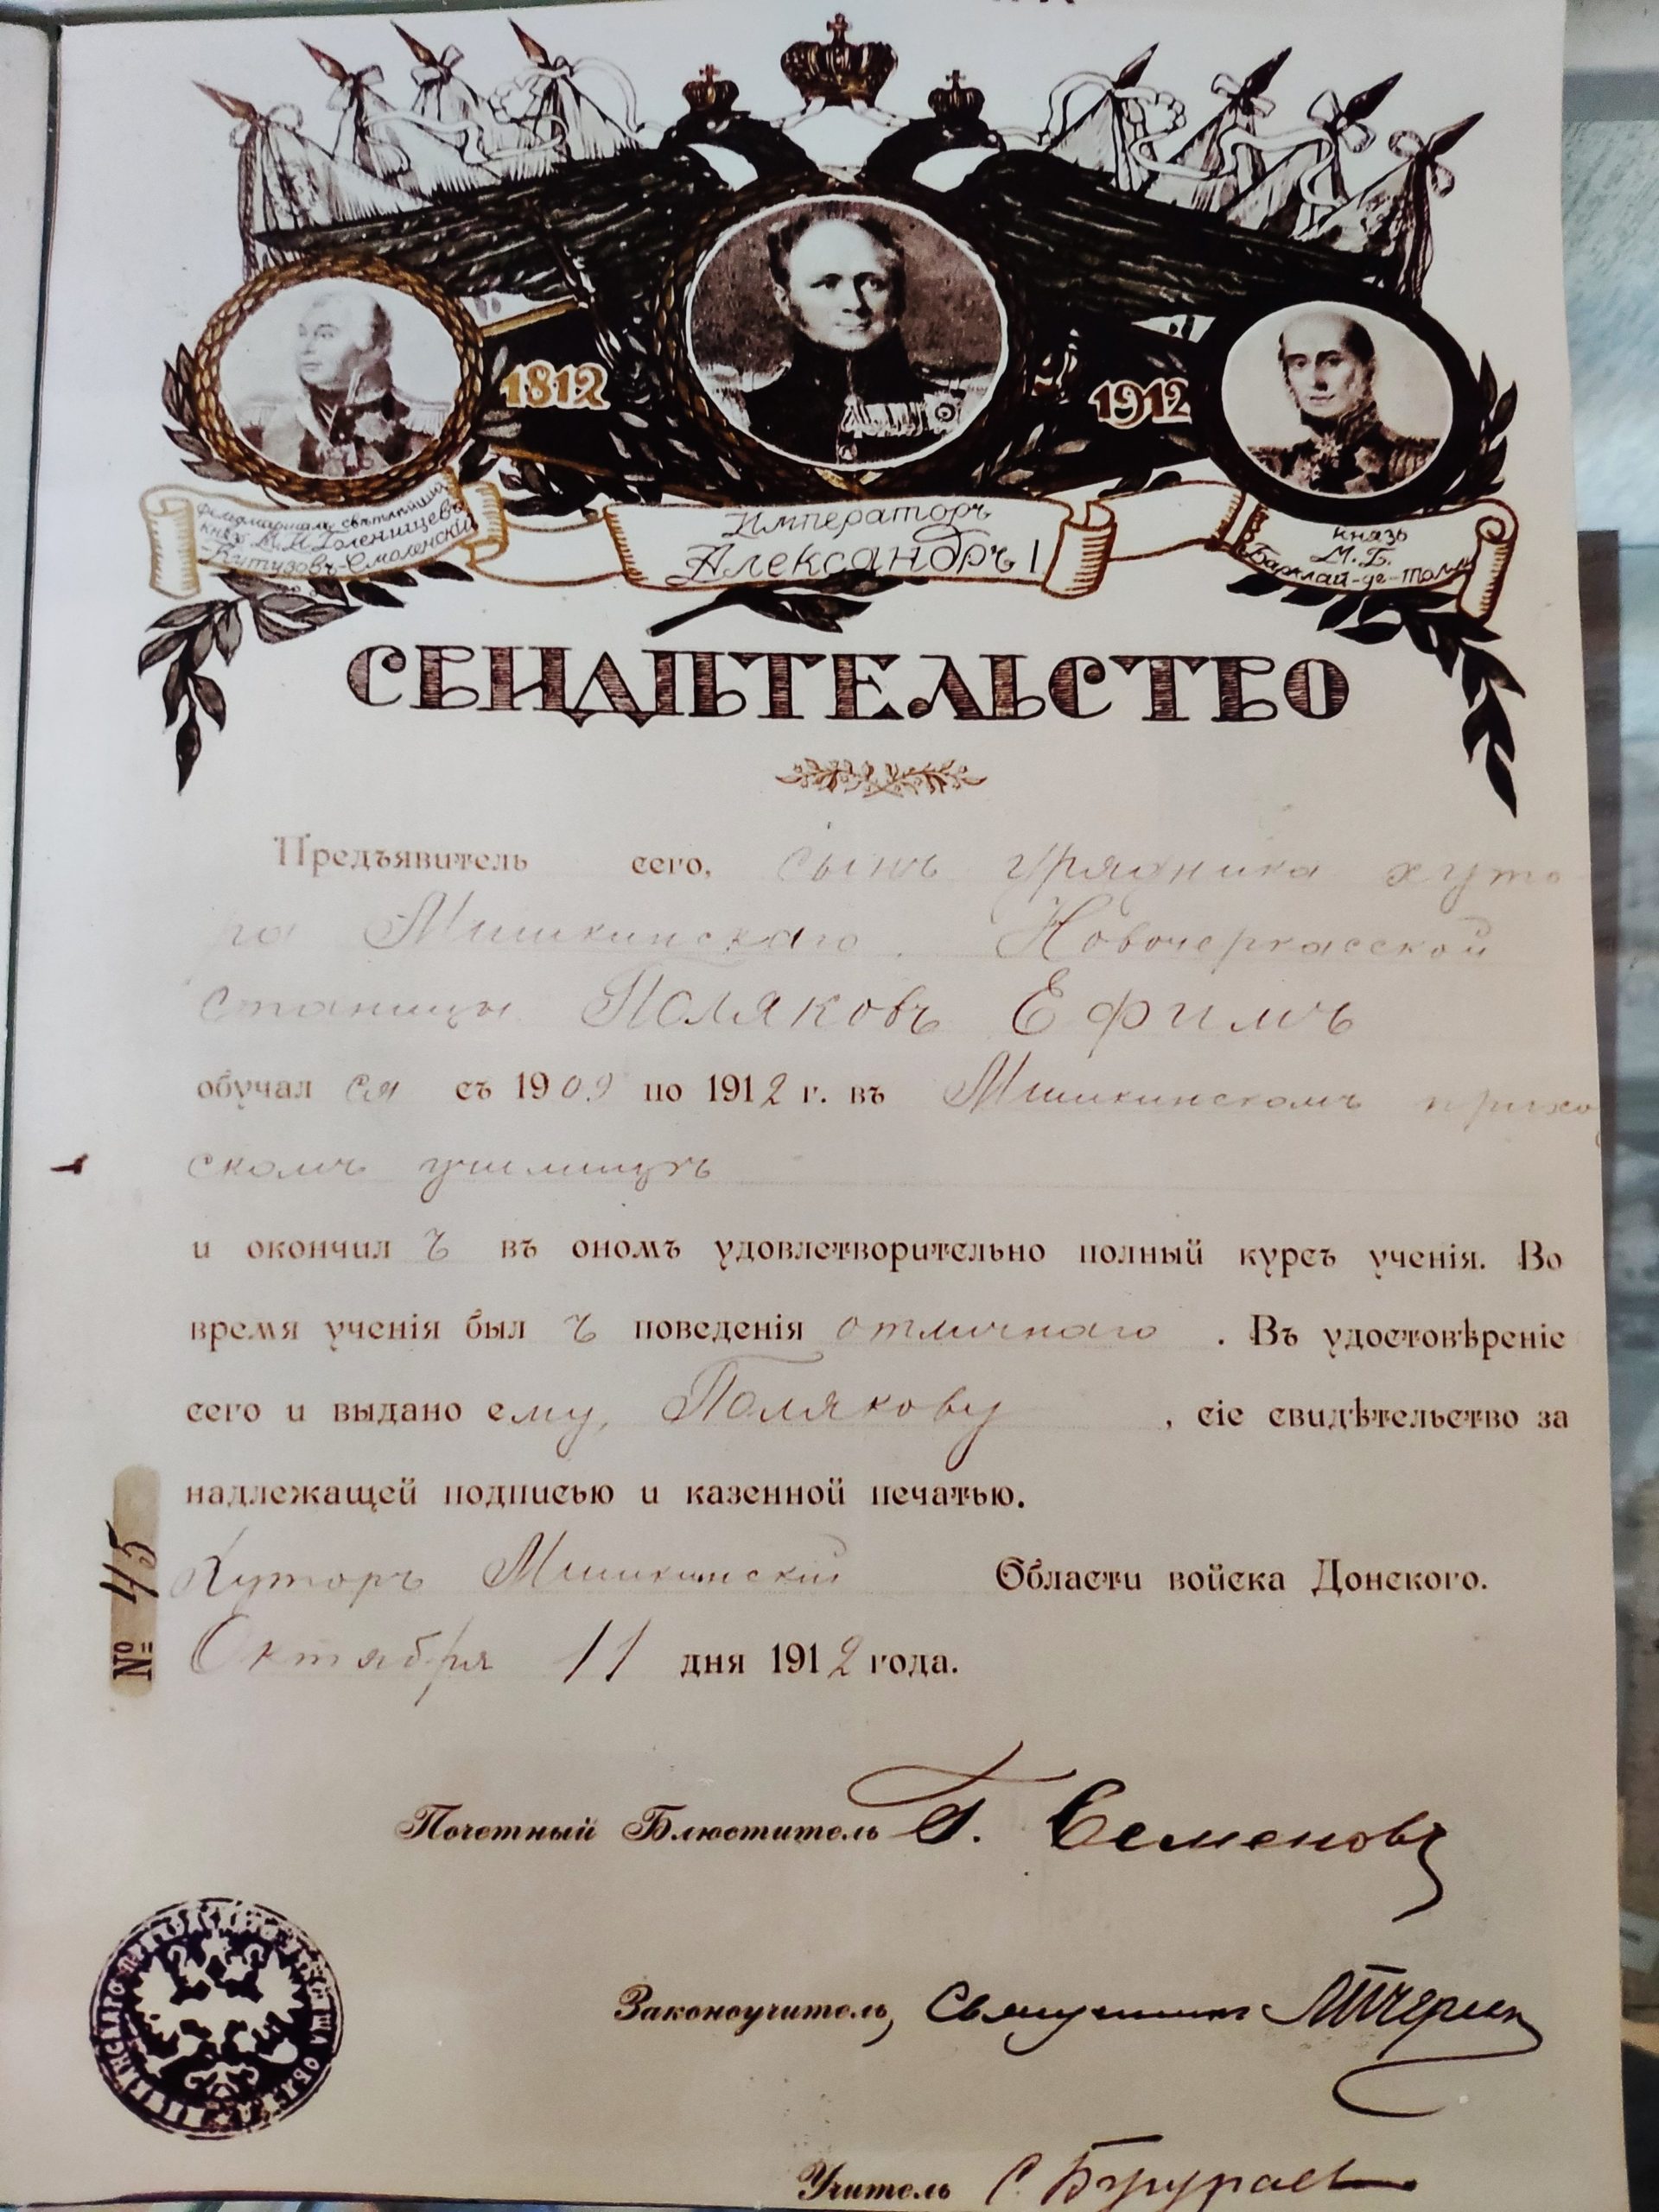 1812
1912
Фельдмаршалъ свѣтлѣйшій
князь М.И.Голенищевъ
-Кутузовъ-Смоленскій
Императоръ
Александръ I
князь
М.Б.
Барклай-де-Толли
СВИДѢТЕЛЬСТВО
Предъявитель сего, сынъ урядника хуто
ра Мишкинскаго Новочеркасской
станицы Поляковъ Ефимъ
обучался съ 1909 по 1912 г. въ Мишкинскомъ приход
скомъ училищѣ
и окончилъ въ ономъ удовлетворительно полный курсъ ученія. Во
время ученія былъ поведенія отличнаго. Въ удостовѣреніе
сего и выдано ему, Полякову, сіе свидѣтельство за
надлежащей подписью и казенной печатью.
Хуторъ Мишкинскій Области войска Донского.
Октября 11 дня 1912 года.
№ 45
Почетный Блюститель Г. Семеновъ
Законоучитель, Священникъ
Учитель С.